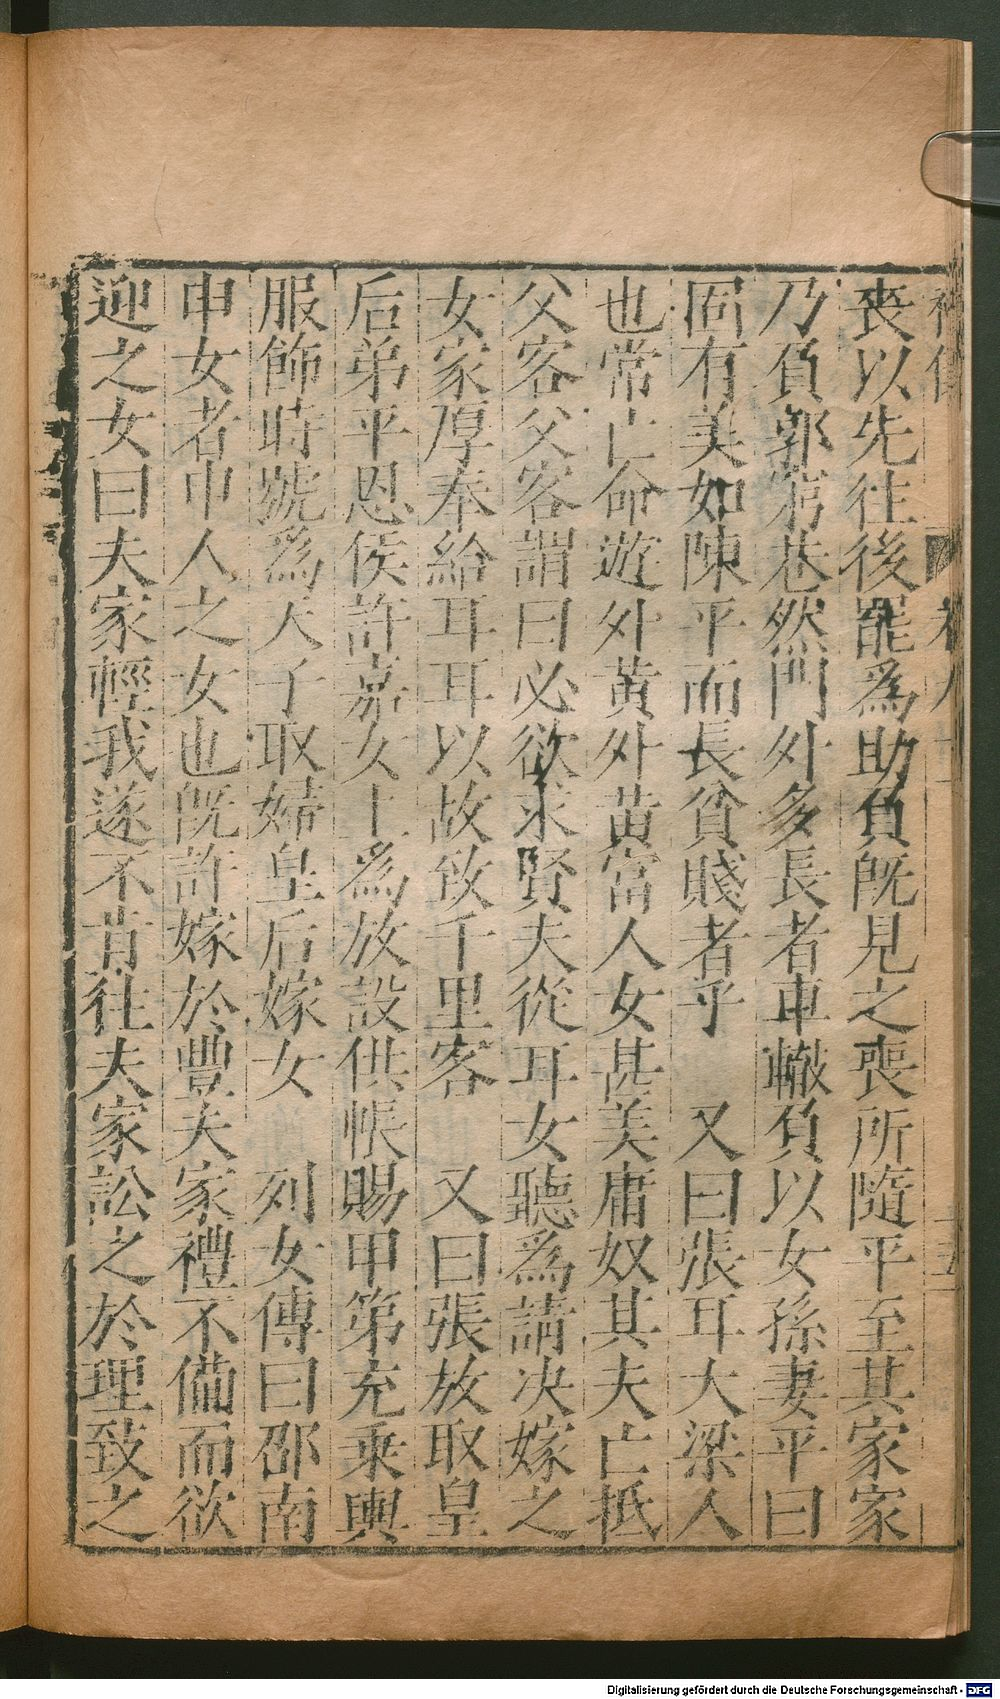 喪以先往後罷爲助負旣見之喪所隨平至其家家
乃負郭窮巷然門外多長者車轍負以女孫妻平曰
固有美如陳平而長貧賤者乎　又曰張耳大梁人
也常亡命遊外黃外黃富人女甚美庸奴其夫亡抵
父客父客謂曰必欲求賢夫從耳女聽爲請决嫁之
女家厚奉給耳耳以故致千里客　又曰張放取皇
后弟平恩侯許嘉女上爲放設供帳賜甲第充乘輿
服飾時號爲天子取婦皇后嫁女　列女傳曰邵南
申女者申人之女也旣許嫁於豐夫家禮不備而欲
迎之女曰夫家輕我遂不肯往夫家訟之於理致之
Digitalisierung gefördert durch die Deutsche Forschungsgemeinschaft - DFG